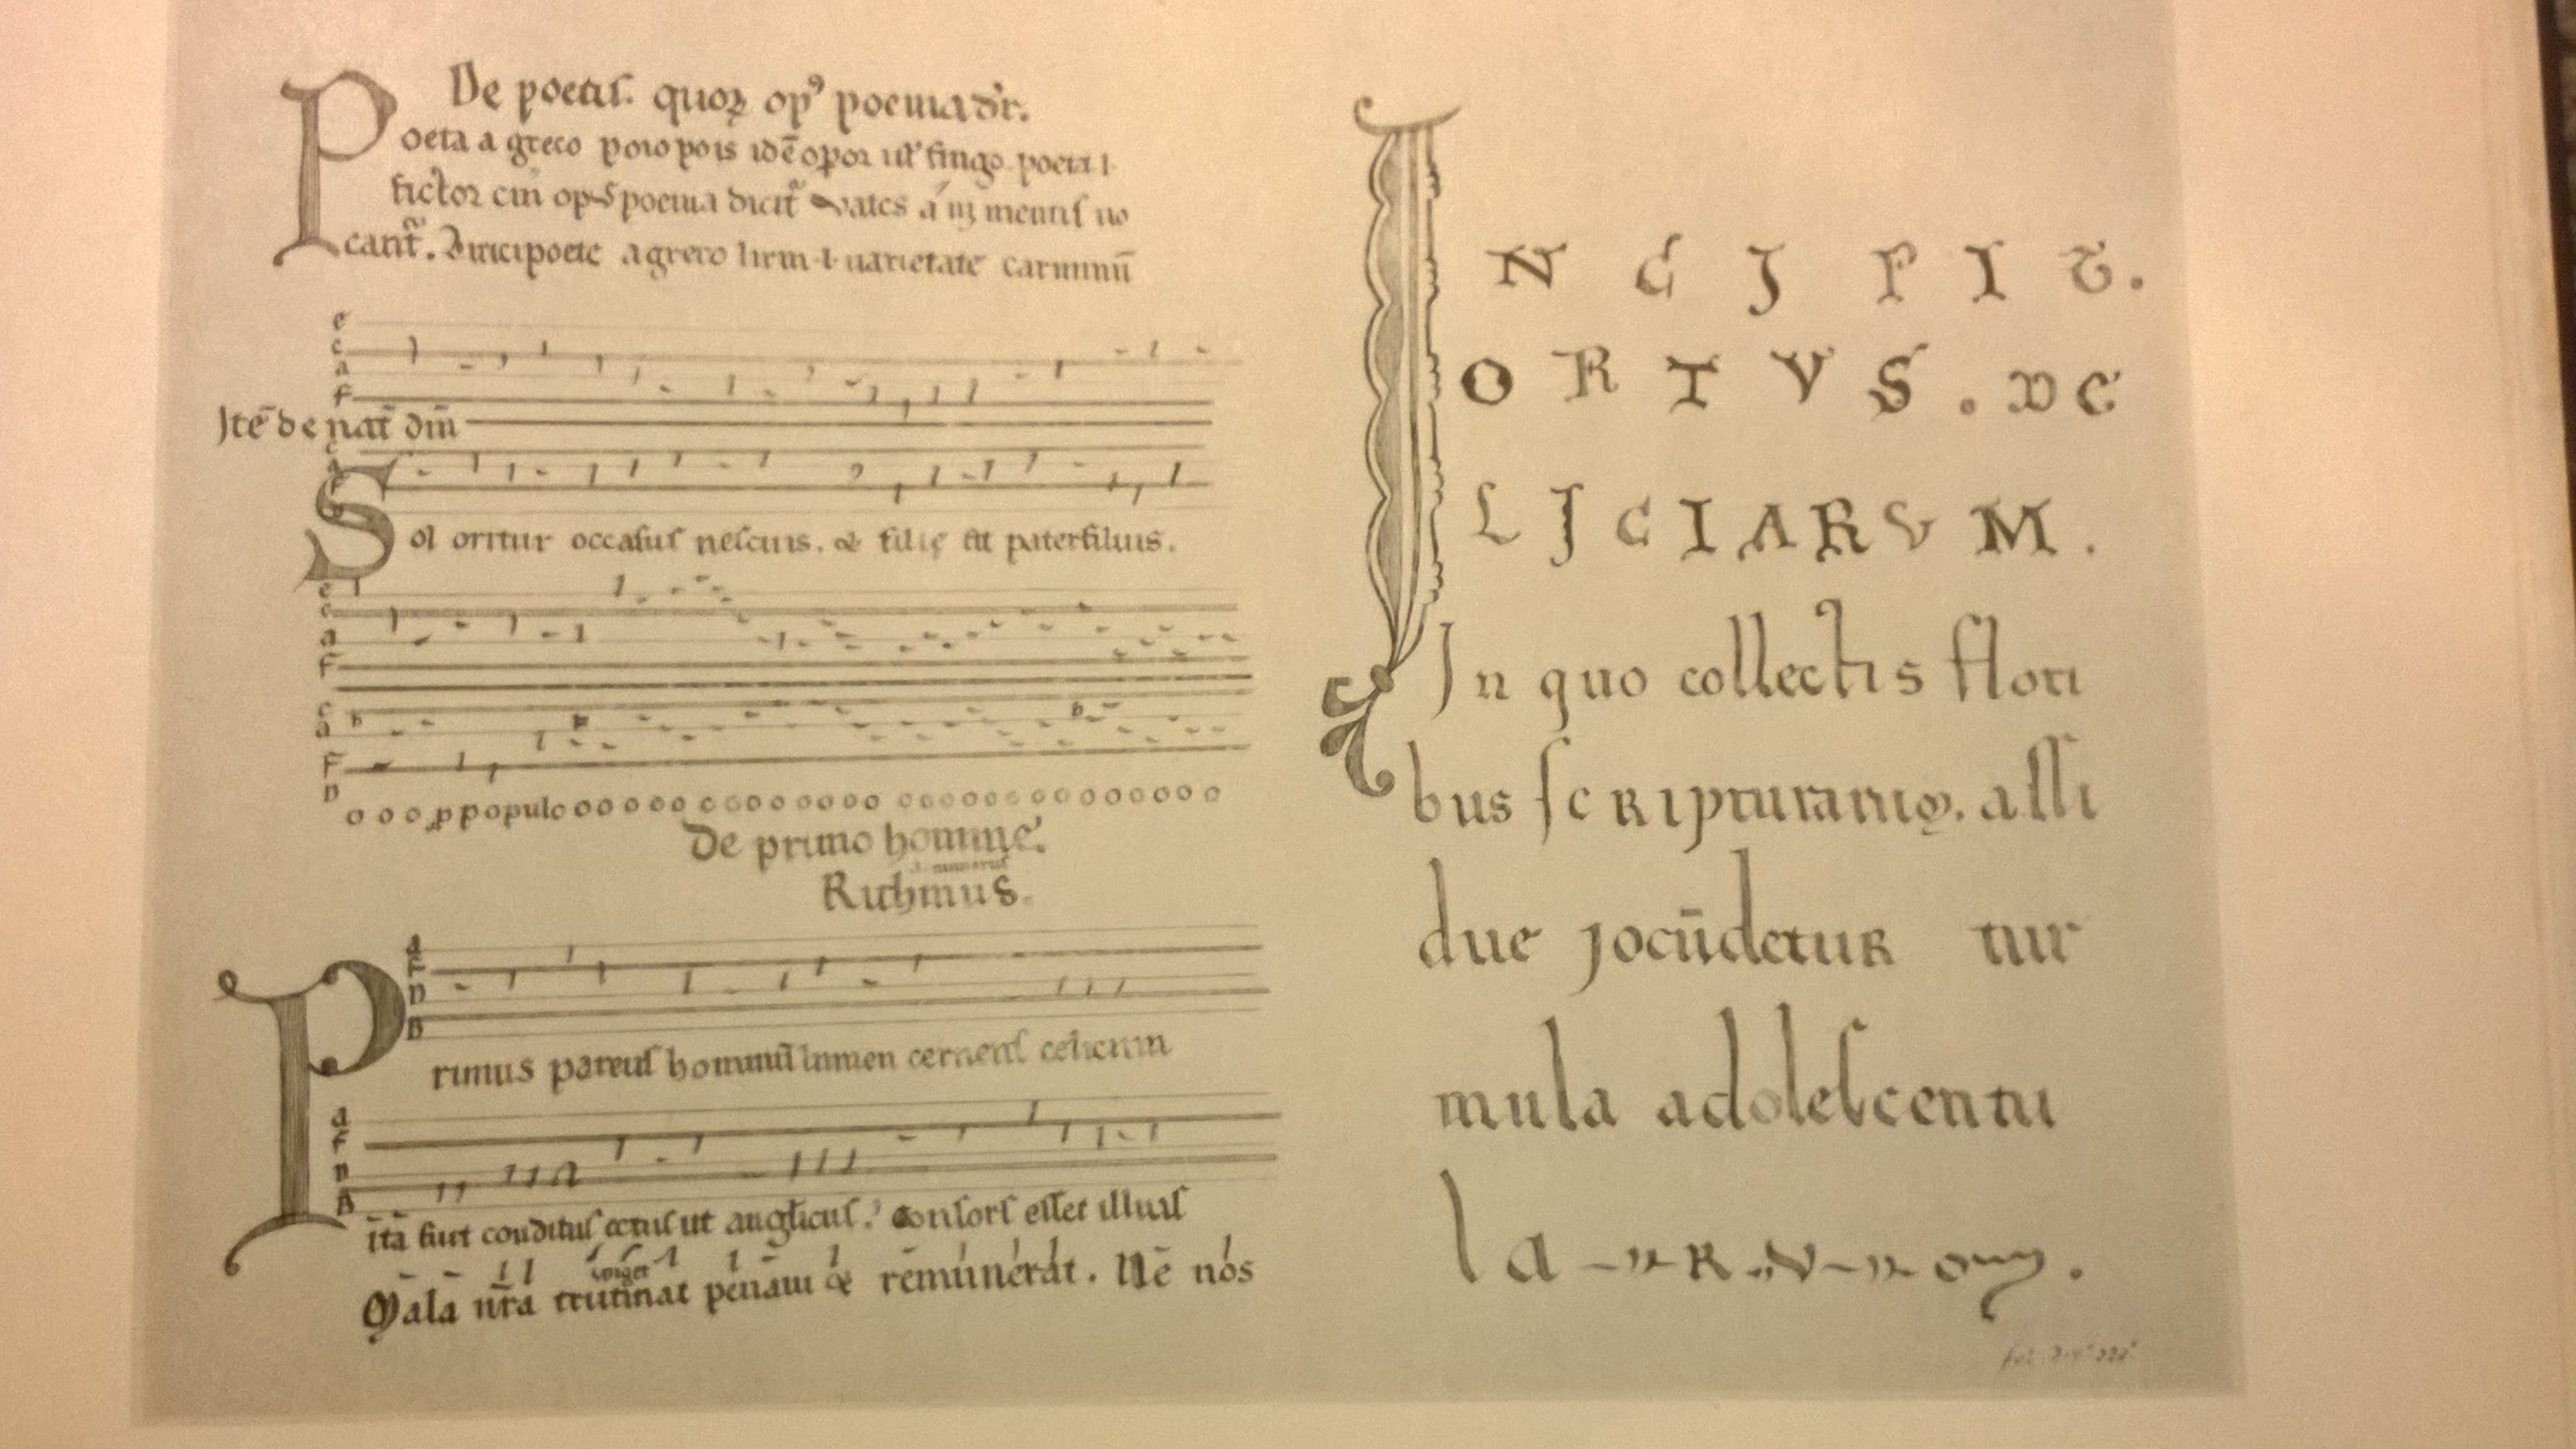 De poetis. quoꝝ opꝰ poema dr̄.
Poeta a greco poio pois idē qp̄or ul' fingo. poeta .i.
fictor cui opꝰ poema dicit̄ vates a ui mentis uo
cant̄. Lirici poete a greco lirin .i. uarietate carminū
e
c
a
f
Itē de nat̄ dn̄i
Sol oritur occasus nesciuis. & filie fit pater filius.
e
c
a
f
c
a
f
D
o o o p populo o o o o o o o o o o o o o o o o o o o o o o o o o
De primo homine.
Rithmus.
a
f
D
B
Primus parens hominū lumen cernens celicum
a
f
D
B
ita fuit conditus cetus ut anglicus. consors esset illius
Mala nr̄a trutinat penam & remunerat. Ne nos
INCIPIT.
ORTVS. DE
LICIARVM.
In quo collectis flori
bus scripturarum. assi
due jocūdetur tur
mula adolescentu
larum.